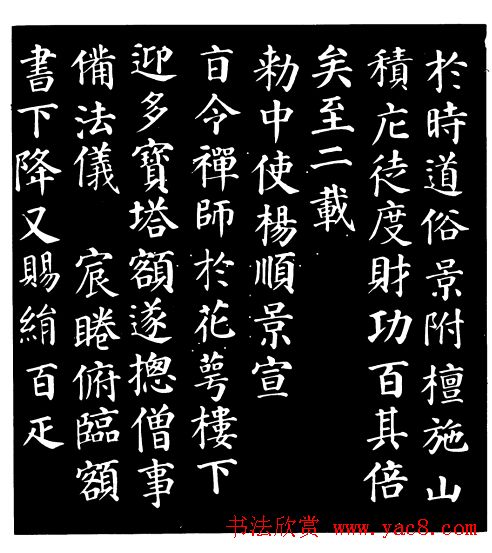 於時道俗景附檀施山
積庀徒度財功百其倍
矣至二載
勑中使楊順景宣
旨令禪師於花萼樓下
迎多寶塔額遂揔僧事
備法儀 宸睠俯臨額
書下降又賜絹百疋
书法欣赏 www.yac8.com